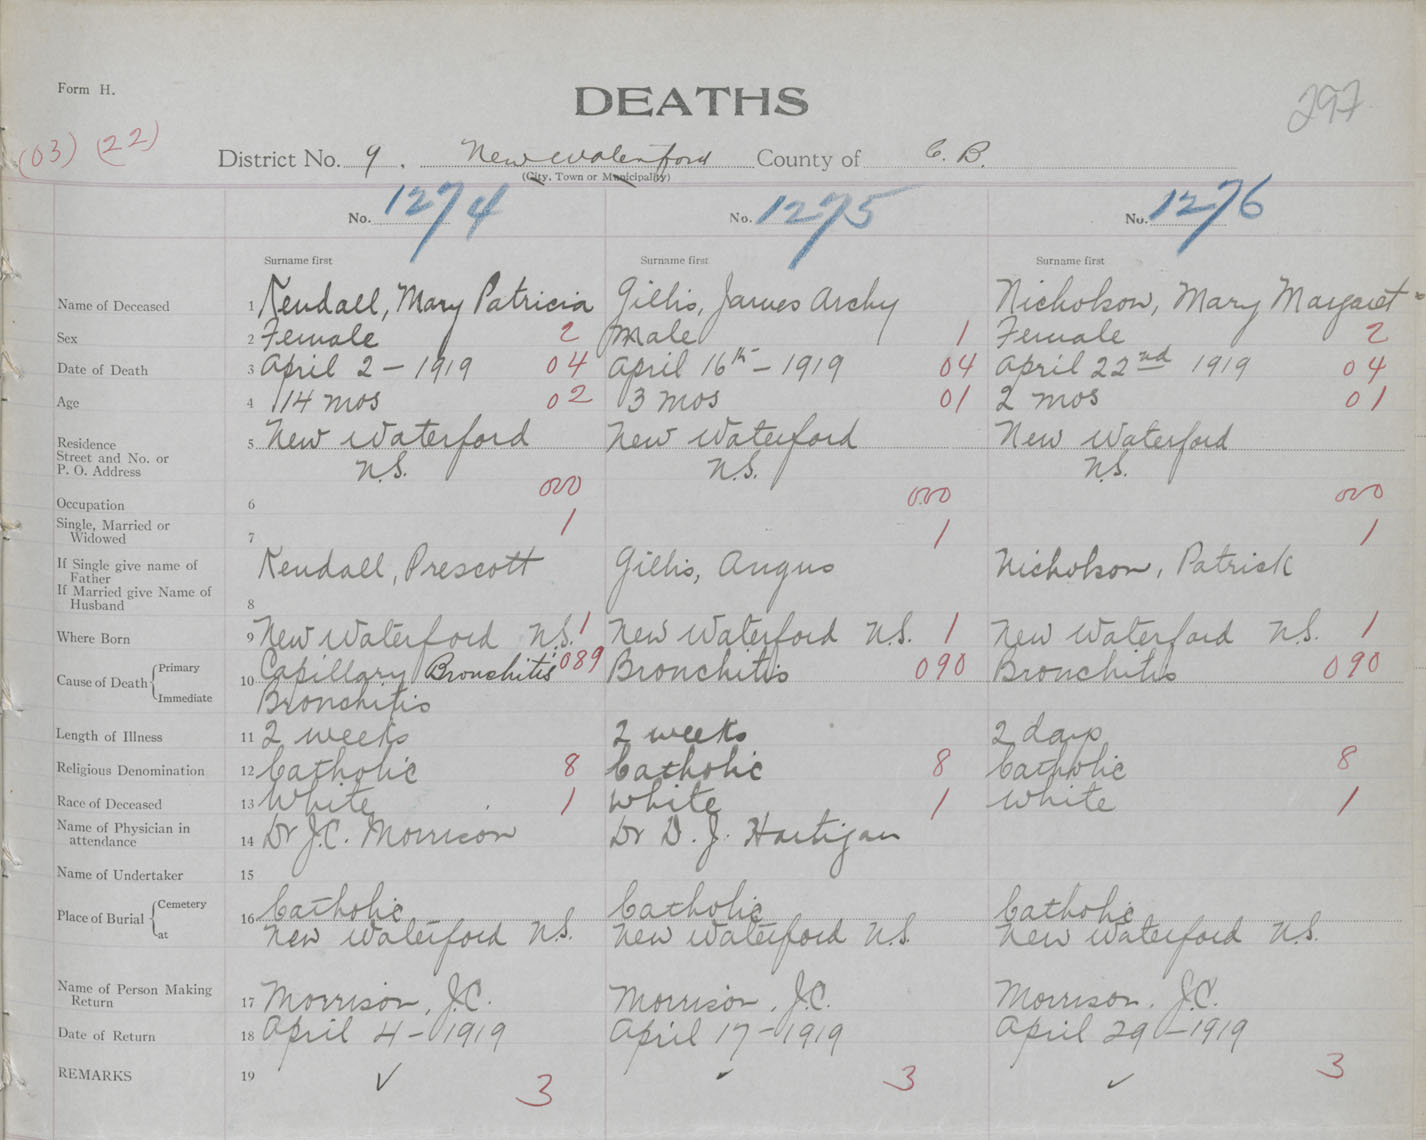 Form H.
DEATHS
297
(03) (22)
District No. 9. New Waterford County of C. B.
(City, Town or Municipality)
No. 1274 No. 1275 No. 1276
Surname first Surname first Surname first
Name of Deceased 1 Kendall, Mary Patricia Gillis, James Archy Nicholson, Mary Margaret
Sex 2 Female 2 Male 1 Female 2
Date of Death 3 April 2 - 1919 04 April 16th - 1919 04 April 22nd 1919 04
Age 4 14 mos 02 3 mos 01 2 mos 01
Residence
Street and No. or
P. O. Address
5 New Waterford New Waterford New Waterford
N.S. N.S. N.S.
Occupation 6 000 000 000
Single, Married or
Widowed 7 1 1 1
If Single give name of
Father
If Married give Name of
Husband 8
Kendall, Prescott Gillis, Angus Nicholson, Patrick
Where Born 9 New Waterford N.S. 1 New Waterford N.S. 1 New Waterford N.S. 1
Cause of Death Primary Immediate
10 Capillary Bronchitis 089 Bronchitis 090 Bronchitis 090
Bronchitis
Length of Illness 11 2 weeks 2 weeks 2 days
Religious Denomination 12 Catholic 8 Catholic 8 Catholic 8
Race of Deceased 13 White 1 White 1 White 1
Name of Physician in
attendance 14 Dr J.C. Morrison Dr D. J. Hartigan
Name of Undertaker 15
Place of Burial Cemetery at
16 Catholic Catholic Catholic
New Waterford N.S. New Waterford N.S. New Waterford N.S.
Name of Person Making
Return 17 Morrison, J.C. Morrison, J.C. Morrison, J.C.
Date of Return 18 April 4 - 1919 April 17 - 1919 April 29 - 1919
REMARKS 19 ✓ 3 ✓ 3 ✓ 3